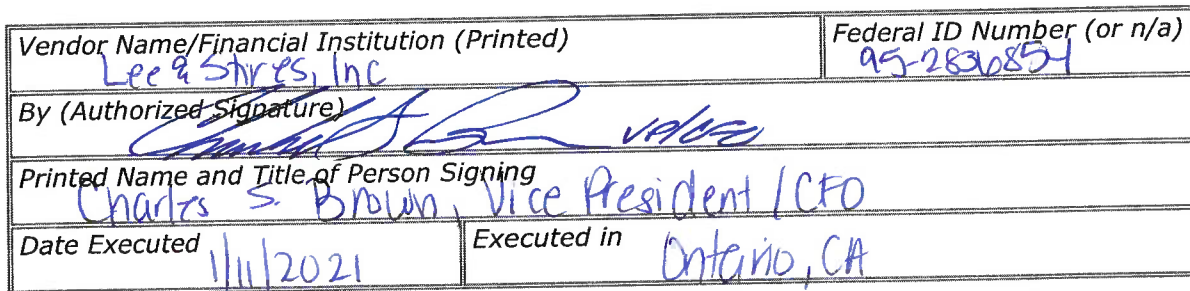 Vendor Name/Financial Institution (Printed)
Lee & Stires, Inc
Federal ID Number (or n/a)
95-2836854
By (Authorized Signature)
VP/CFO
Printed Name and Title of Person Signing
Charles S. Brown, Vice President / CFO
Date Executed
1/11/2021
Executed in
Ontario, CA